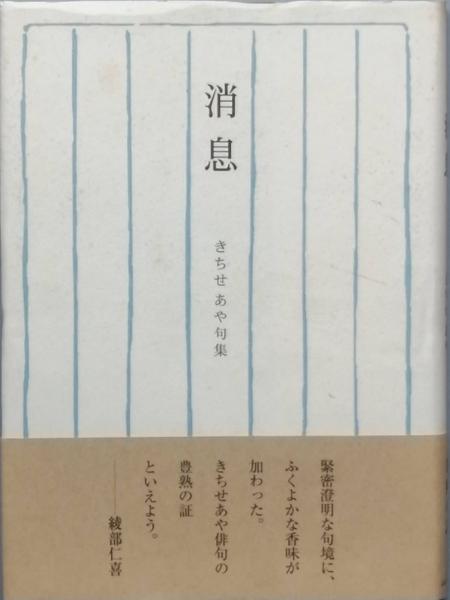 消息
きちせ あや句集
緊密澄明な句境に、
ふくよかな香味が
加わった。
きちせあや俳句の
豊熟の証
といえよう。
──綾部仁喜